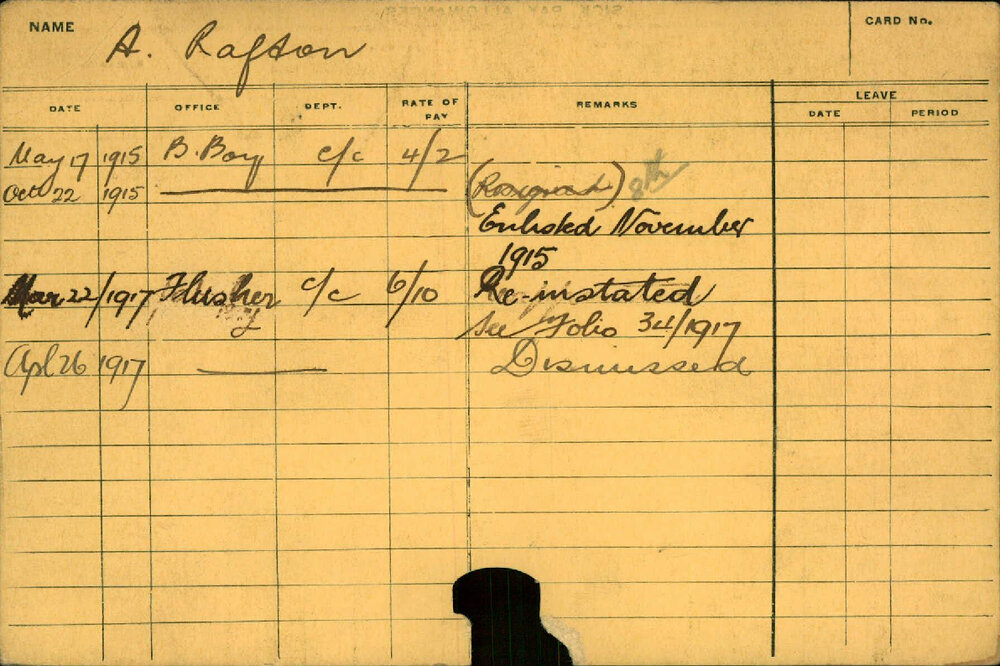 NAME A. Rafton CARD No.
DATE OFFICE DEPT. RATE OF PAY REMARKS LEAVE DATE PERIOD
May 17 1915 B. Boy c/c 4/2
Oct 22 1915 (Resigned) 8th
Enlisted November
1915
Mar 22/1917 Flusher c/c 6/10 Re-instated
See Folio 34/1917
Apl 26 1917 Dismissed